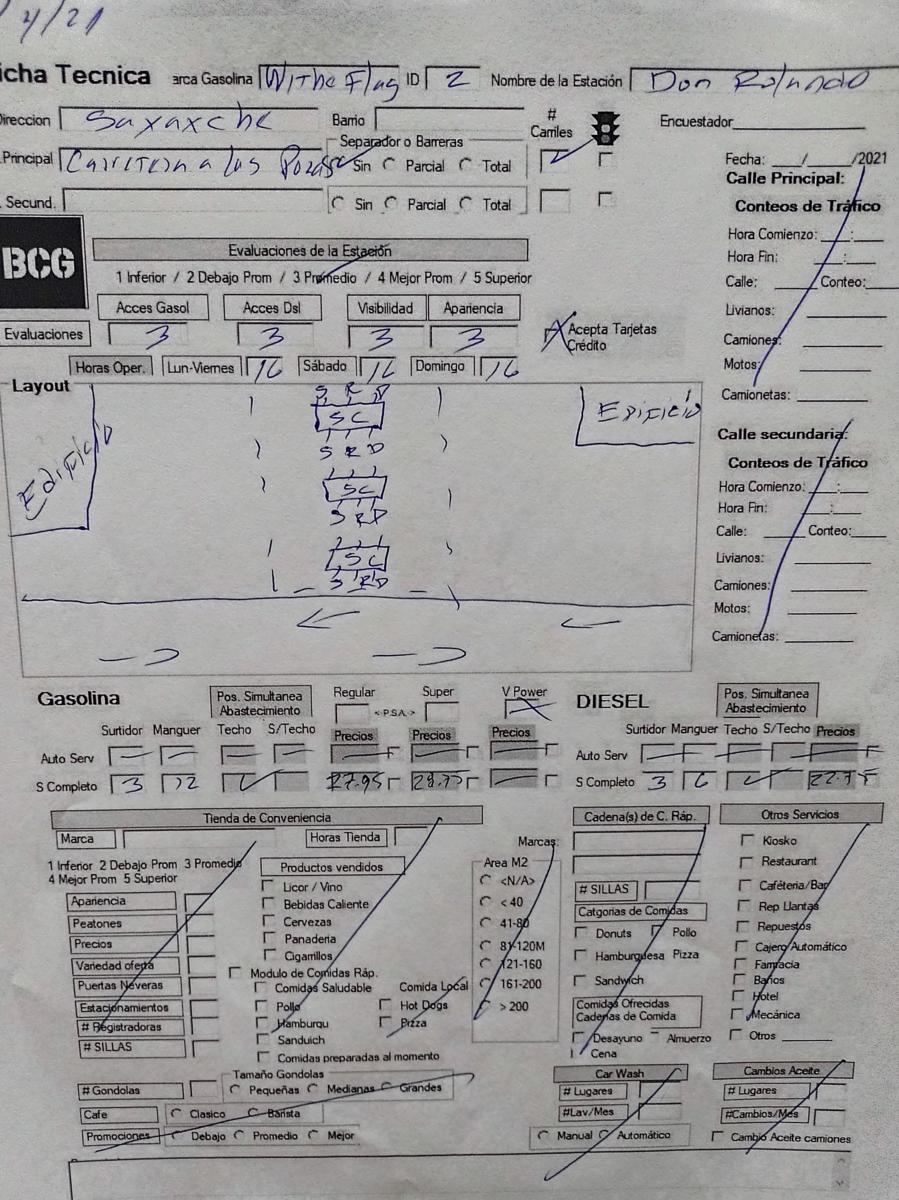 4/21
icha Tecnica arca Gasolina Withe Flag ID 2 Nombre de la Estación Don Rolando
Direccion Saxaxche Barrio # Carriles Encuestador
Principal Carretera a las Pozas Separador o Barreras Sin Parcial Total 2 Fecha: / /2021
. Secund. Sin Parcial Total
Calle Principal:
Conteos de Tráfico
Hora Comienzo: :
Hora Fin: :
Calle: Conteo:
Livianos:
Camiones:
Motos:
Camionetas:
BCG
Evaluaciones de la Estación
1 Inferior / 2 Debajo Prom / 3 Promedio / 4 Mejor Prom / 5 Superior
Acces Gasol Acces Dsl Visibilidad Apariencia
Evaluaciones 3 3 3 3 Acepta Tarjetas Crédito
Horas Oper. Lun-Viernes 16 Sábado 16 Domingo 16
Layout
Edificio
S R D
SC
S R D
SC
S R D
SC
S R D
Edificio
Calle secundaria:
Conteos de Tráfico
Hora Comienzo: :
Hora Fin: :
Calle: Conteo:
Livianos:
Camiones:
Motos:
Camionetas:
Gasolina Pos. Simultanea Abastecimiento Regular <P.S.A.> Super V Power
Surtidor Manguer Techo S/Techo Precios Precios Precios
Auto Serv
S Completo 3 12 27.95 28.75
DIESEL Pos. Simultanea Abastecimiento
Surtidor Manguer Techo S/Techo Precios
Auto Serv
S Completo 3 6
Tienda de Conveniencia
Marca Horas Tienda
1 Inferior 2 Debajo Prom 3 Promedio
4 Mejor Prom 5 Superior
Apariencia
Peatones
Precios
Variedad oferta
Puertas Neveras
Estacionamientos
# Registradoras
# SILLAS
Productos vendidos
Licor / Vino
Bebidas Caliente
Cervezas
Panaderia
Cigarrillos
Modulo de Comidas Ráp.
Comidas Saludable Comida Local
Pollo Hot Dogs
Hamburqu Pizza
Sanduich
Comidas preparadas al momento
Marcas:
Area M2
<N/A>
< 40
41-80
81-120M
121-160
161-200
> 200
# Gondolas Tamaño Gondolas Pequeñas Medianas Grandes
Cafe Clasico Barista
Promociones Debajo Promedio Mejor
Cadena(s) de C. Ráp.
# SILLAS
Catgorias de Comidas
Donuts Pollo
Hamburguesa Pizza
Sandwich
Comidas Ofrecidas
Cadenas de Comida
Desayuno Almuerzo
Cena
Otros Servicios
Kiosko
Restaurant
Caféteria/Bar
Rep Llantas
Repuestos
Cajero Automático
Farmacia
Baños
Hotel
Mecánica
Otros
Car Wash
# Lugares
#Lav/Mes
Manual Automático
Cambios Aceite
# Lugares
#Cambios/Mes
Cambio Aceite camiones